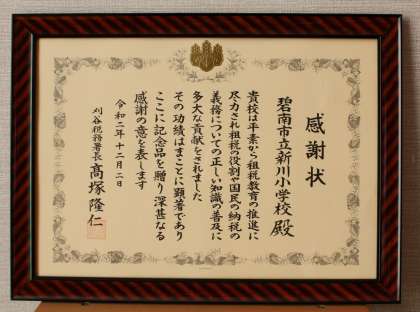 感謝状
碧南市立新川小学校 殿
貴校は平素から租税教育の推進に
尽力され租税の役割や国民の納税の
義務についての正しい知識の普及に
多大な貢献をされました
その功績はまことに顕著であり
ここに記念品を贈り深甚なる
感謝の意を表します
令和二年十二月二日
刈谷税務署長 髙塚隆仁